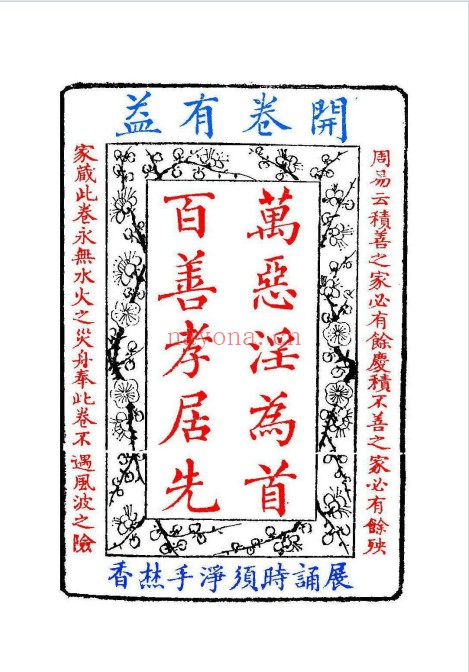 開卷有益
周易云積善之家必有餘慶積不善之家必有餘殃
萬惡淫為首
百善孝居先
家藏此卷永無水火之災舟奉此卷不遇風波之險
展誦時須淨手焚香
nayona.cn